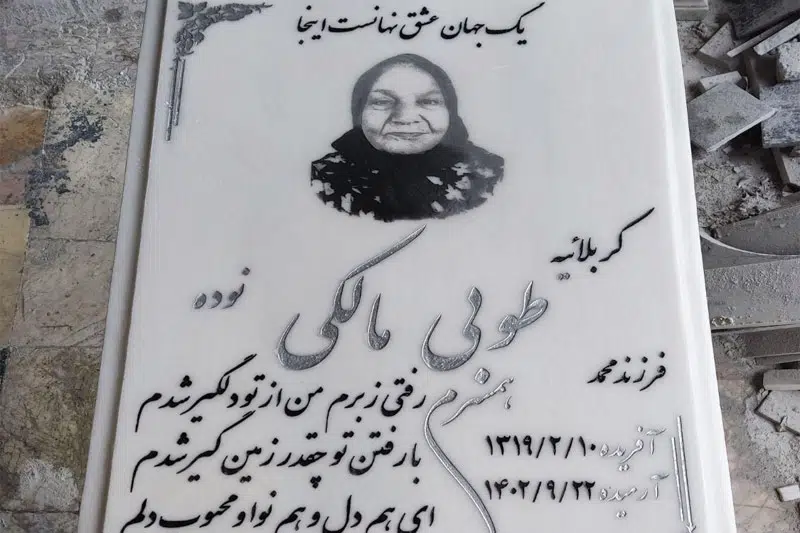 یک جهان عشق نهانست اینجا
کربلائیه
طوبی مالکی نوده
فرزند محمد
همسرم
رفتی ز برم من از تو دلگیر شدم
با رفتن تو چقدر زمین گیر شدم
ای هم دل و هم نوا و محبوب دلم
آفریده ۱۳۱۹/۲/۱۰
آرمیده ۱۴۰۲/۹/۲۲